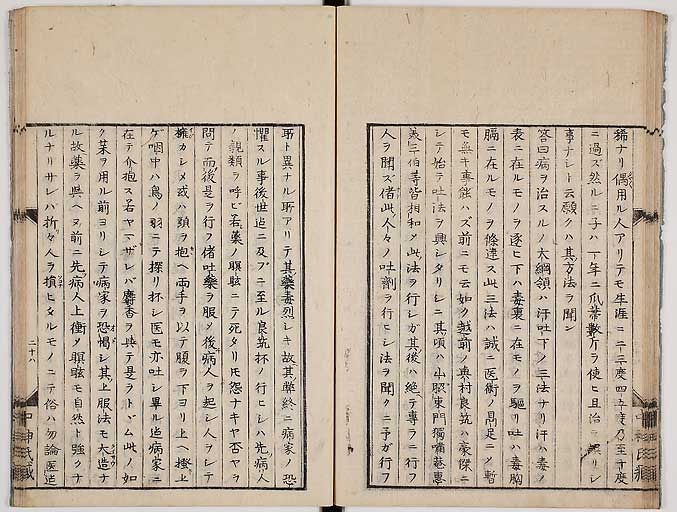 稀ナリ偶用ル人アリテモ生涯ニ二三度四五度乃至十度
ニ過ズ然ルニ子ハ一年ニ爪蔕數斤ヲ使ヒ且治ニ誤リシ
事ナシト云願クハ其方法ヲ聞ン
答曰病ヲ治スルノ大綱領ハ汗吐下ノ三法ナリ汗ハ毒ノ
表ニ在ルモノヲ逐ヒ下ハ毒裏ニ在モノヲ驅リ吐ハ毒胸
膈ニ在ルモノヲ條達ス此三法ハ誠ニ医術ノ鼎足ニノ暫
モ無キ事能ハズ前ニモ云如ク越前ノ奥村良筑ハ豪傑ニ
シテ始テ吐法ヲ興シタリシニ其頃ハ山脇東門獨嘯菴惠
美三伯等皆相和メ此法ヲ行シガ其後ハ絶テ專ラニ行フ
人ヲ聞ズ偖此人々ノ吐劑ヲ行ヒシ法ヲ聞クニ予ガ行フ
所ト異ナル所アリテ其藥毒烈シキ故其華終ニ病家ノ恐
懼スル事後世迄ニ及ブニ至ル良筑杯ノ行ヒシハ先病人
ノ親類ヲ呼ビ若藥ノ瞑眩ニテ死タリモ怨ナキヤ否ヤヲ
問テ而後是ヲ行フ偖吐藥ヲ服メ後病人ヲ起シ人ヲシテ
擁カシメ或ハ頭ヲ抱ヘ両手ヲ以テ腹ヲ下ヨリ上ヘ撥上
ゲ咽中ハ鳥ノ羽ニテ探リ杯シ医モ亦吐シ畢ル迄病家ニ
在テ介抱ス若ヤマザレバ麝香ヲ與テ是ヲトヾム此ノ如
ク藥ヲ用ル前ヨリシテ病家ヲ恐惕シ其上服法モ大造ナ
ル故藥ヲ與ヘヌ前ニ先病人上衝メ瞑眩モ自然ト強クナ
ルナリサレバ折々人ヲ損ヒタルモノニテ俗ハ勿論医迄
二十八
中神氏蔵